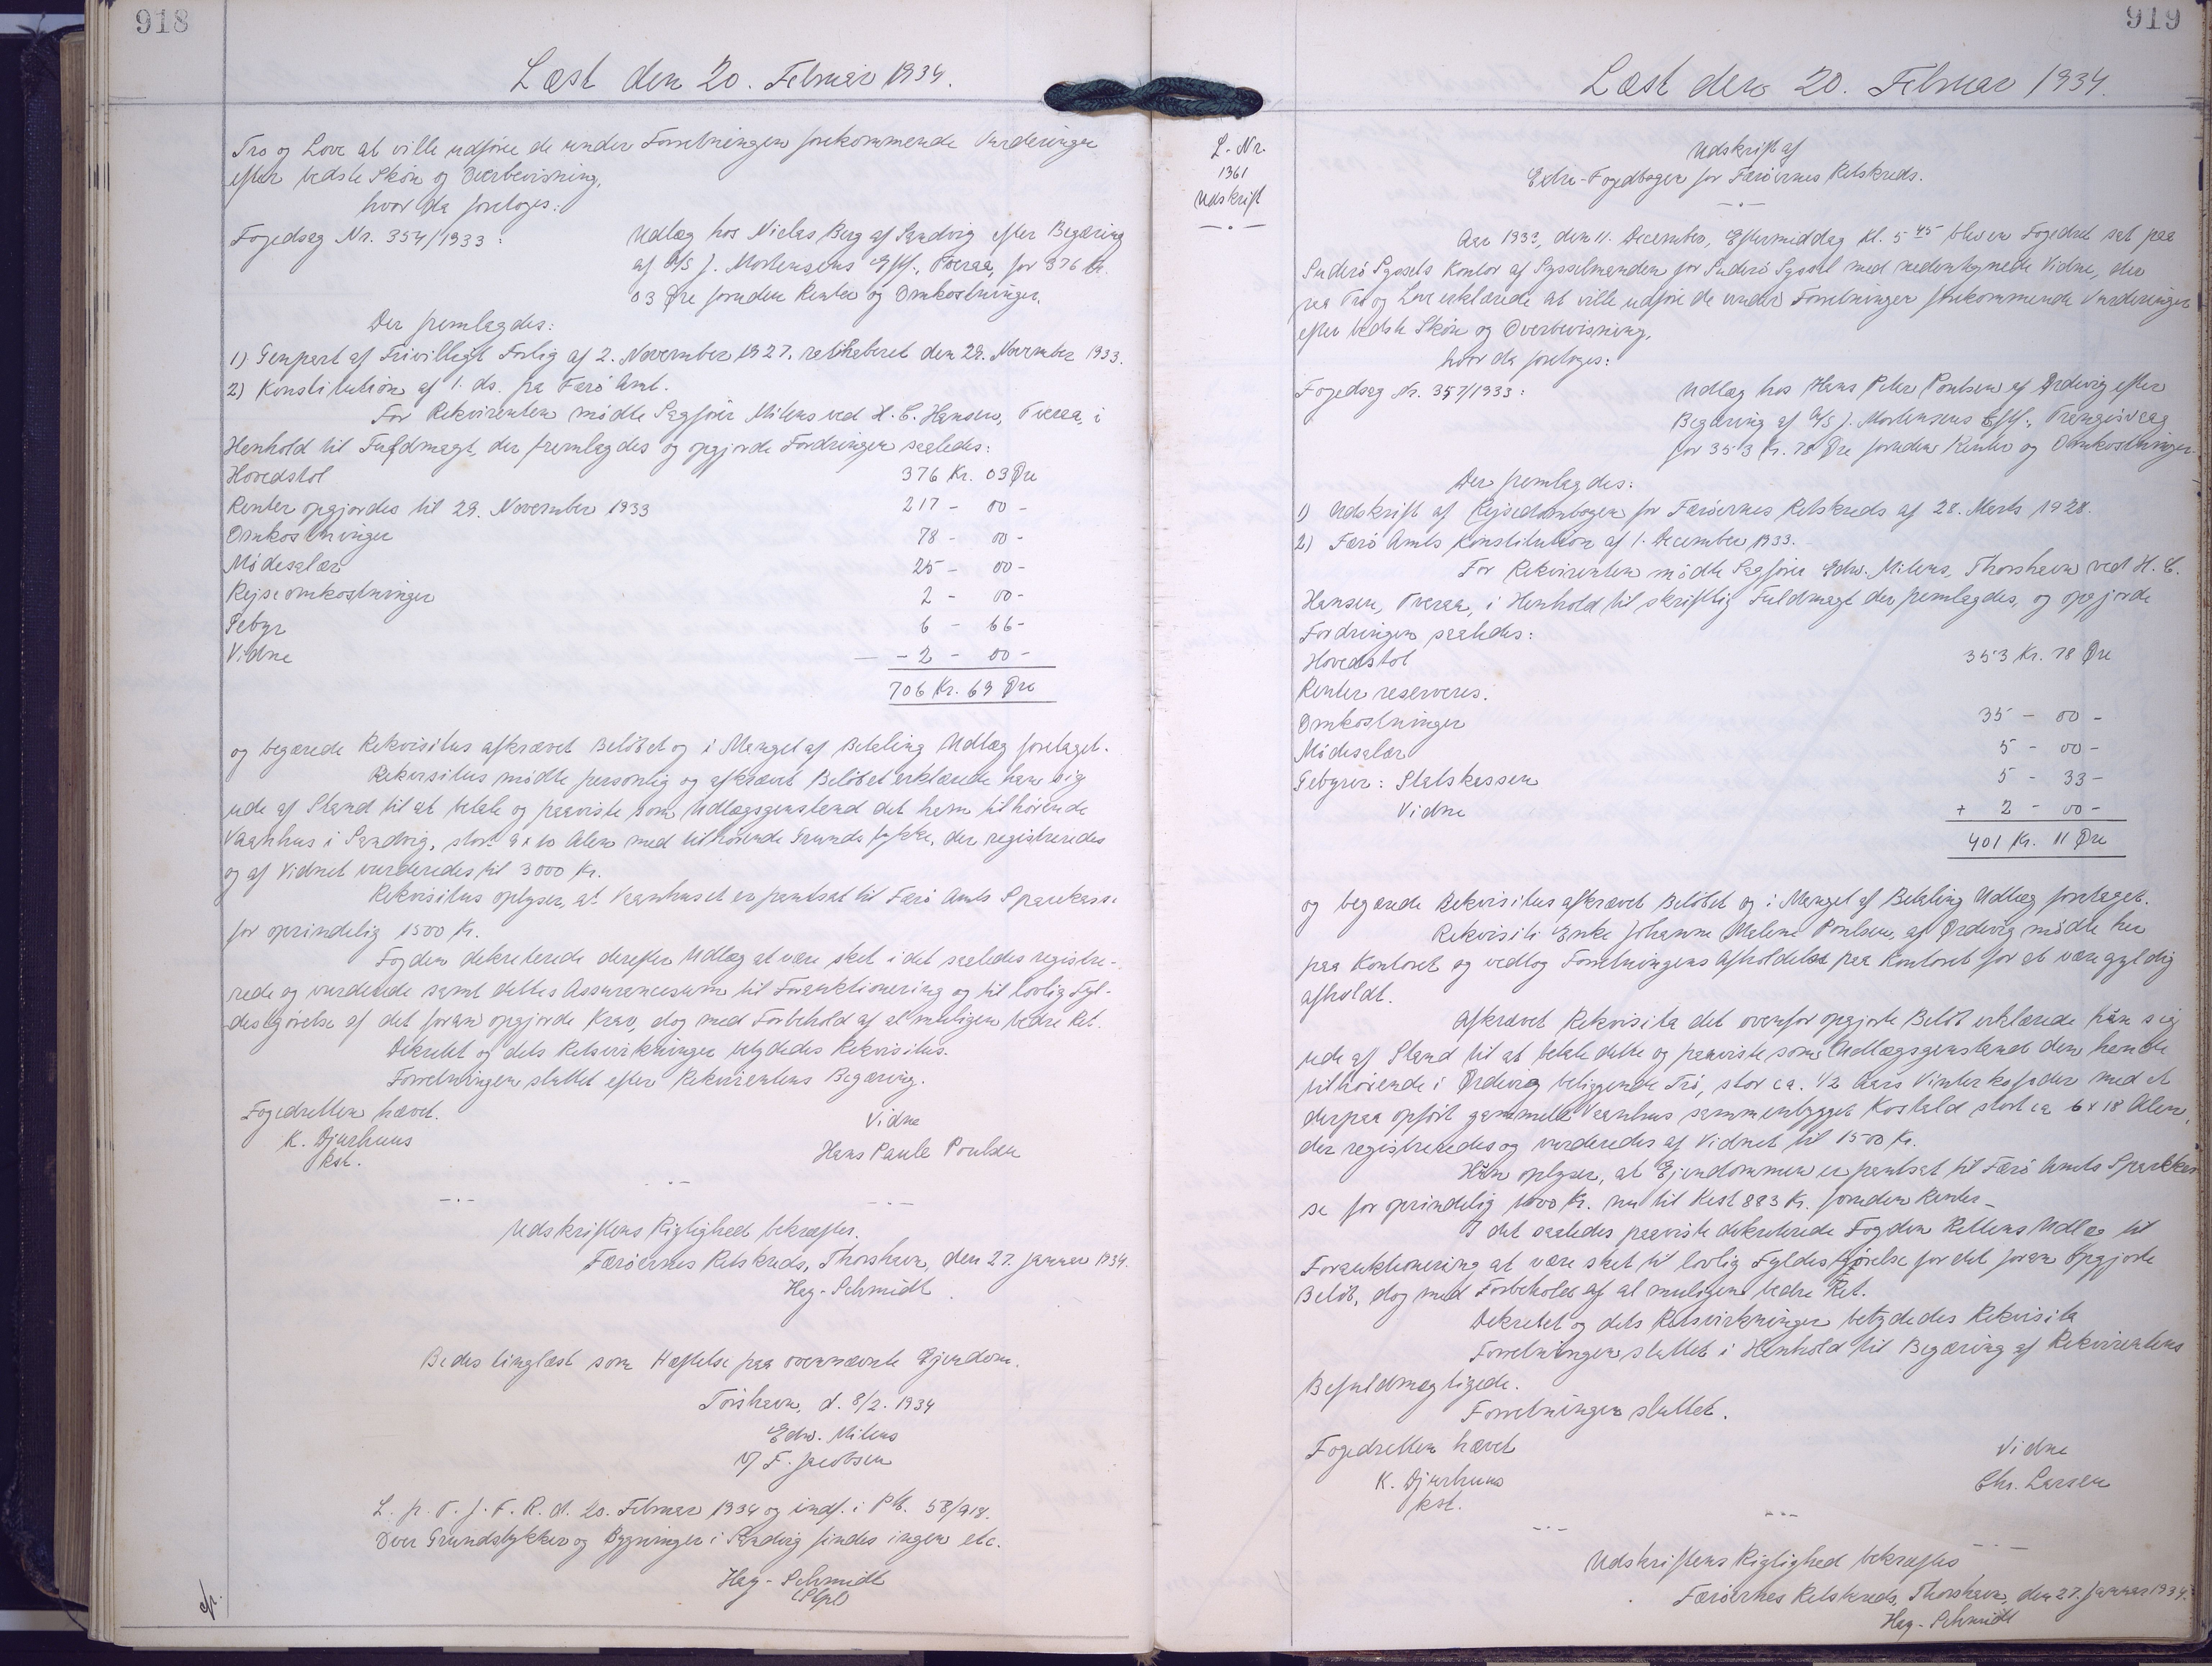 918
Læst den 20. Februar 1934.
Tro og Love at ville udföre de under Forretningen forekommende Vurderinger
efter bedste Skön og Overbevisning,
hvor da foretoges:
Fogedsag Nr. 354/1933:
Udlæg hos Niclas Berg af Sandvig efter Begæring
af A/S J. Mortensens Eftf., Tveraa, for 376 Kr.
03 Øre foruden Renter og Omkostninger.
Der fremlagdes:
1) Genpart af Frivilligt Forlig af 2. November 1927, ratihaberet den 29. November 1933.
2) Konstitution af 1. ds. fra Færö Amt.
For Rekvirenten mödte Sagförer Mitens ved H. C. Hansen, Tveraa, i
Henhold til Fuldmagt, der fremlagdes og opgjorde Fordringen saaledes:
Hovedstol 376 Kr. 03 Øre
Renter opgjordes til 29. November 1933 217 - 00 -
Omkostninger 78 - 00 -
Mödesalær 25 - 00 -
Rejseomkostninger 2 - 00 -
Gebyr 6 - 66 -
Vidne - 2 - 00 -
706 Kr. 69 Øre
og begærede Rekvisitus afkrævet Belöbet og i Mangel af Betaling Udlæg foretaget.
Rekvisitus mödte personlig og afkrævet Belöbet erklærede han sig
ude af Stand til at betale og paaviste som Udlægsgenstand det ham tilhörende
Vaanhus i Sandvig, stort 9 x 10 Alen med tilhörende Grundstykke, der registreredes
og af Vidnet vurderedes til 3000 Kr.
Rekvisitus oplyser, at Vaanhuset er pantsat til Færö Amts Sparekasse
for oprindelig 1500 Kr.
Fogden dekreterede derefter Udlæg at være sket i det saaledes registre-
rede og vurderede samt dettes Assurancesum til Forauktionering og til lovlig Fyl-
destgörelse af det foran opgjorde Krav, dog med Forbehold af al muligen bedre Ret.
Dekretet og dets Retsvirkninger betydedes Rekvisitus.
Forretningen sluttet efter Rekvirentens Begæring.
Fogedretten hævet.
K. Djurhuus
kst.
Vidne
Hans Paule Poulsen
Udskriftens Rigtighed bekræftes.
Færöernes Retskreds, Thorshavn, den 27. Januar 1934.
Hey-Schmidt
Bedes tinglæst som Hæftelse paa ovennævnte Ejendom.
Tórshavn, d. 8/2. 1934
Edw. Mitens
v/ F. Jacobsen
L. p. T. f. F. R. d. 20. Februar 1934 og indf. i Pb. 58/918.
Over Grundstykker og Bygninger i Sandvig findes ingen etc.
Hey-Schmidt
(Stpl)
919
Læst den 20. Februar 1934.
L. Nr.
1361
Udskrift
Udskrift af
Extra-Fogedbogen for Færöernes Retskreds.
Aar 1933, den 11. December, Eftermiddag Kl. 5 45 blev en Fogedret sat paa
Suderö Syssels Kontor af Sysselmanden for Suderö Syssel med nedentegnede Vidne, der
paa Tro og Love erklærede at ville udföre de under Forretningen forekommende Vurderinger
efter bedste Skön og Overbevisning,
hvor da foretoges:
Fogedsag Nr. 357/1933:
Udlæg hos Hans Peter Poulsen af Ørdevig efter
Begæring af A/S J. Mortensens Eftf., Trangisvaag
for 353 Kr. 78 Øre foruden Renter og Omkostninger.
Der fremlagdes:
1) Udskrift af Rejsedombogen for Færöernes Retskreds af 28. Marts 1928.
2) Færö Amts Konstitution af 1. December 1933.
For Rekvirenten mödte Sagförer Edw. Mitens, Thorshavn ved H. C.
Hansen, Tveraa, i Henhold til skriftlig Fuldmagt der fremlagdes, og opgjorde
Fordringen saaledes:
Hovedstol 353 Kr. 78 Øre
Renter reserveres.
Omkostninger 35 - 00 -
Mödesalær 5 - 00 -
Gebyrer: Statskassen 5 - 33 -
Vidne + 2 - 00 -
401 Kr. 11 Øre
og begærede Rekvisitus afkrævet Belöbet og i Mangel af Betaling Udlæg foretaget.
Rekvisiti Enke Johanne Malene Poulsen, af Ørdevig mödte her
paa Kontoret og vedtog Forretningens Afholdelse paa Kontoret for at være gyldig
afholdt.
Afkrævet Rekvisita det ovenfor opgjorte Belöb erklærede hun sig
ude af Stand til at betale dette og paaviste som Udlægsgenstand den hende
tilhörende i Ørdevig beliggende Trö, stor ca. 1/2 Aars Vinterkofoder med et
derpaa opfört gammelt Vaanhus sammenbygget Kostald stort ca 6 x 18 Alen,
der registreredes og vurderedes af Vidnet til 1500 Kr.
Hun oplyser, at Ejendommen er pantsat til Færö Amts Sparekas-
se for oprindelig 1000 Kr. nu til Rest 883 Kr. foruden Renter.
I det saaledes paaviste dekreterede Fogden Rettens Udlæg til
Forauktionering at være sket til lovlig Fyldestgörelse for det foran opgjorte
Belöb, dog med Forbehold af al muligen bedre Ret.
Dekretet og dets Retsvirkninger betydedes Rekvisita
Forretningen sluttet i Henhold til Begæring af Rekvirentens
Befuldmægtigede.
Forretningen sluttet.
Fogedretten hævet
K. Djurhuus
kst.
Vidne
Chr. Larsen
Udskriftens Rigtighed bekræftes
Færöernes Retskreds, Thorshavn, den 27. Januar 1934.
Hey-Schmidt